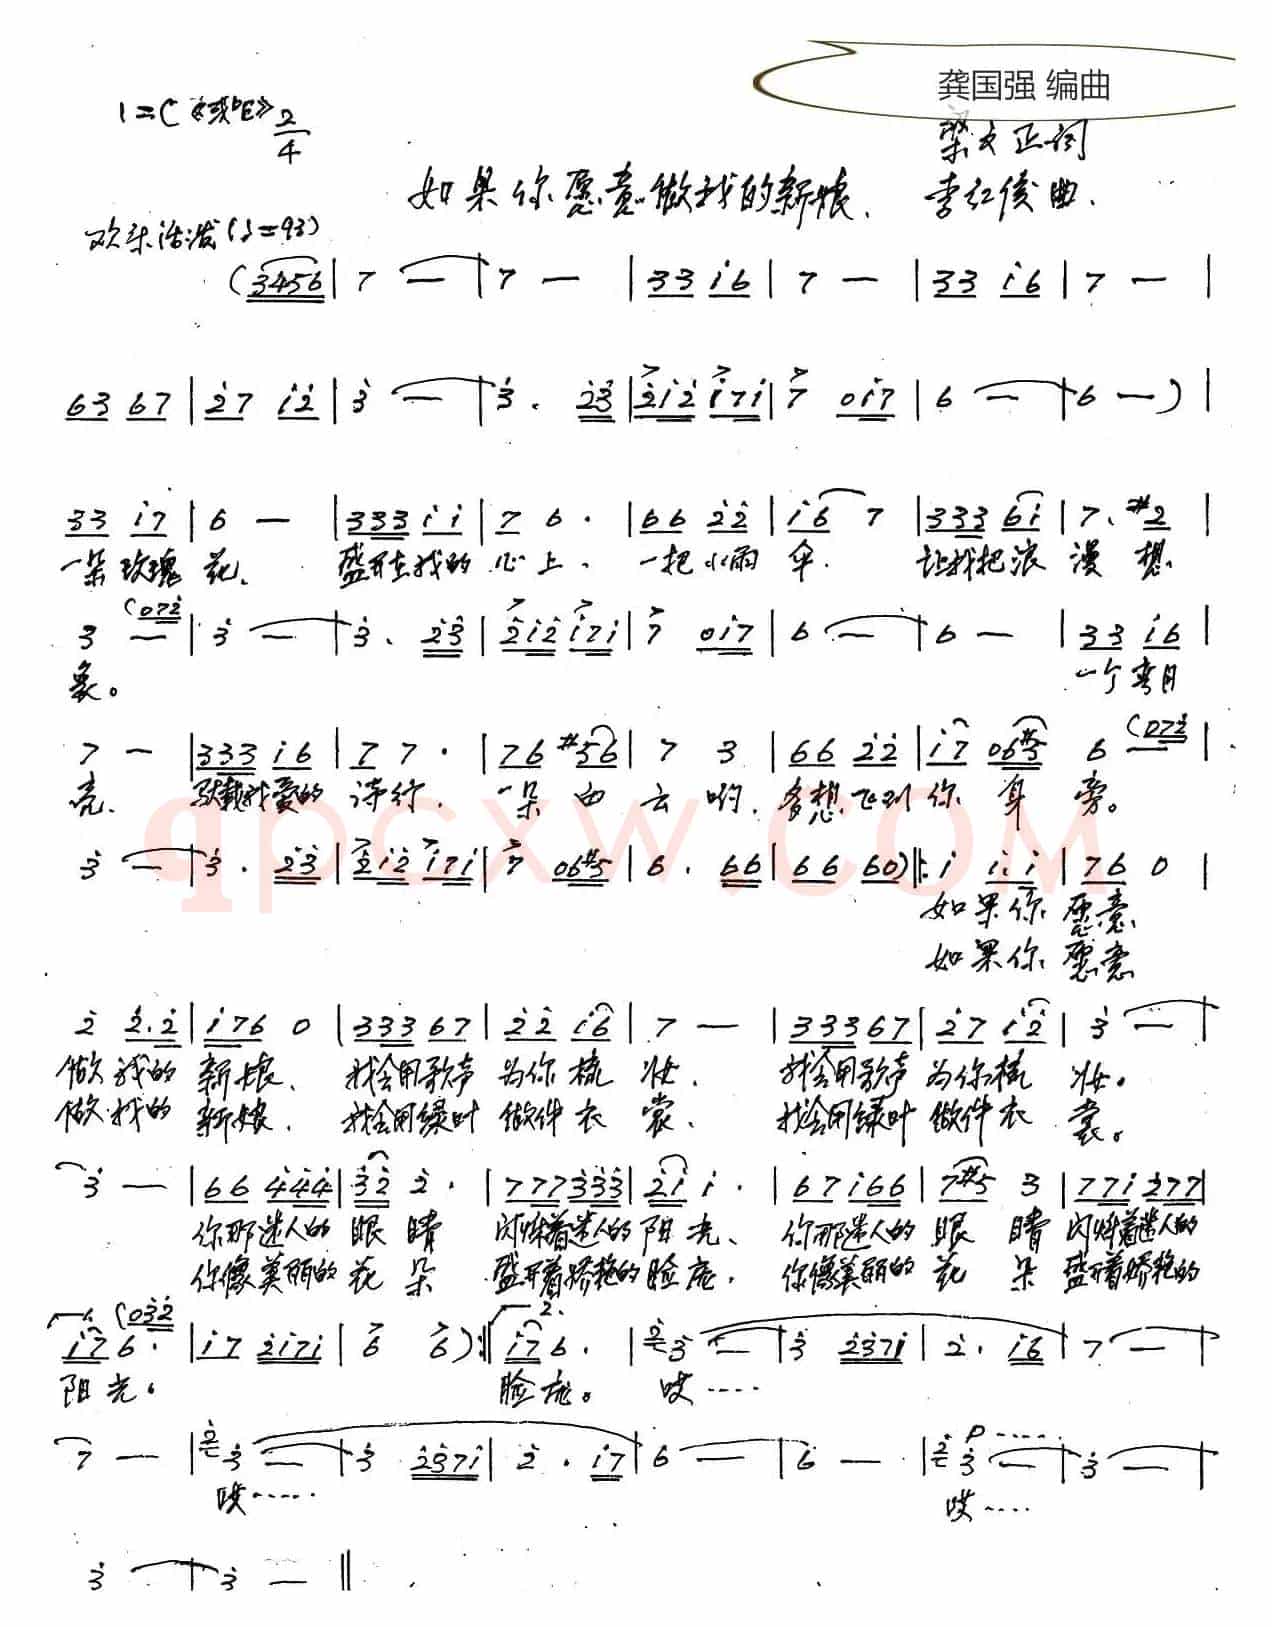 龚国强 编曲
1=C《或ᵇE》2/4
梁文正词
如果你愿意做我的新娘.
李红俊曲.
欢乐活泼(♩=93)
(3456|7 —|7 —|33 i6|7 —|33 i6|7 —|
63 67|27 i2|3 —|3. 23|2i2 i7i|7 0i7|6 —|6 —)|
33 i7|6 —|333 i i|7 6.|66 22|i6 7|333 6i|7. #2|
一朵玫瑰 花. 盛开在我的 心上. 一把小雨 伞. 让我把浪 漫 想
(072
3 —|3 —|3. 23|2i2 i7i|7 0i7|6 —|6 —|33 i6|
象。 一个弯月
(072
7 —|333 i6|7 7.|76 #56|7 3|66 22|i7 06#5|6 —|
亮. 驮载我爱的 诗行. 一朵 白 云 哟. 多想飞到你 身 旁。
3 —|3. 23|2i2 i7i|7 06#5|6. 66|66 60)|:i i.i|76 0|
如果你 愿意
如果你 愿意
2 2.2|i76 0|333 67|22 i6|7 —|333 67|27 i2|3 —|
做 我的 新娘. 我会用歌声 为你梳 妆. 我会用歌声 为你梳 妆。
做 我的 新娘. 我会用绿叶 做件衣 裳. 我会用绿叶 做件衣 裳。
3 —|66 444|32 2.|777 333|2i i.|67 i66|7#5 3|77i 277|
你那迷人的 眼 睛 闪烁着迷人的 阳 光、 你那迷人的 眼 睛 闪烁着迷人的
你像美丽的 花 朵 盛开着娇艳的 脸 庞. 你像美丽的 花 朵 盛开着娇艳的
1. (032 2.
i7 6.|i7 2i7i|6 6):|i7 6.|2 3 —|3 237i|2. i6|7 —|
阳 光. 脸 庞。 哎……
P……
7 —|2 3 —|3 237i|2. i7|6 —|6 —|2 3 —|3 —|
哎…… 哎……
3 —|3 —‖
qpcxw.com